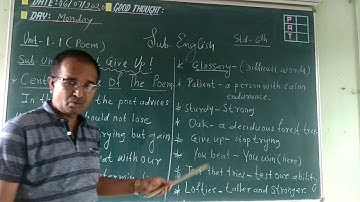 DATE: 06/07/2020
GOOD THOUGHT:
DAY: Monday
P
A T
Unit-1.1 (Poem)
Sub-English
Std-6th
Give Up!
Cent Of The Poem
In th the poet advices
should not lose
trying but gain
eat with our
Glossary- (Difficult words)
* Patient - a person with calm
endurance.
* Sturdy - Strong
* Oak - a deciduous forest tree
* Give up - stop trying
* You beat - You win (here)
that tries - test our ability
* Loftier - taller and stronger